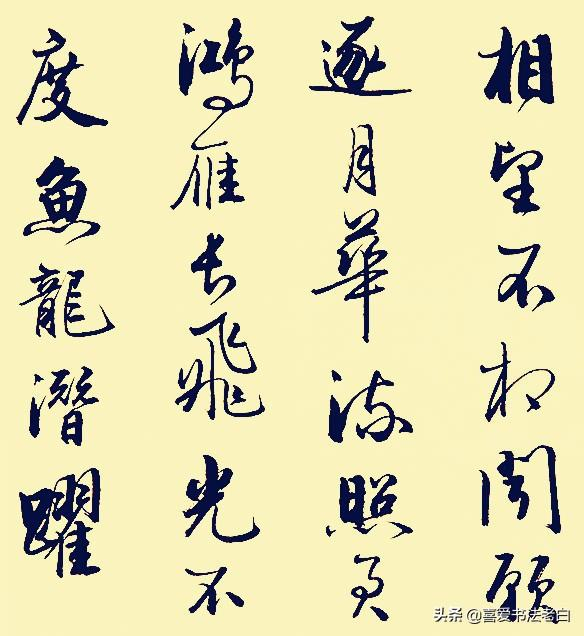 相望不相聞願
逐月華流照君
鴻雁長飛光不
度魚龍潛躍
头条 @喜爱书法老白